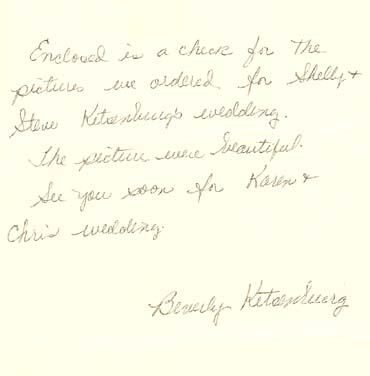 Enclosed is a check for the
pictures we ordered for Shelly +
Steve Kitsenburg's wedding.
The picture were beautiful.
See you soon for Karen +
Chris wedding.
Beverly Kitsenburg